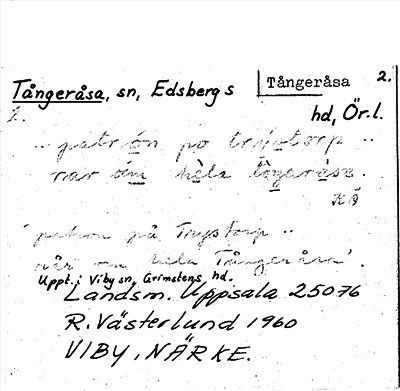 Tångeråsa 2.
Tångeråsa, sn, Edsbergs
hd, Ör.l.
2.
.. patrón po trýstorp ..
rår óm hela tögeråsa.
KÅ
'patron på Trystorp ..
rår om hela Tångeråsa'.
Uppt. i Viby sn, Grimstens hd.
Landsm. Uppsala 25076
R. Västerlund 1960
VIBY, NÄRKE.